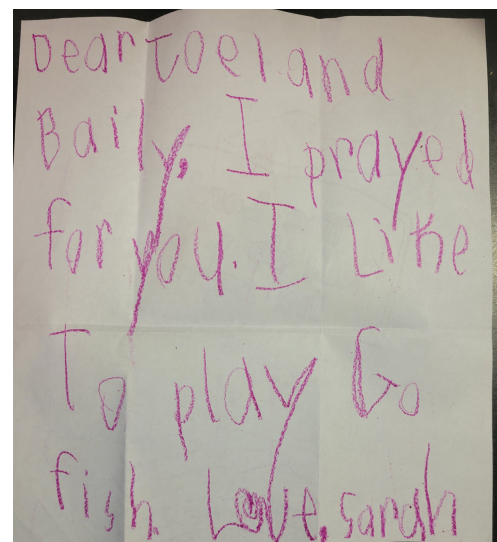 Dear Joel and
Baily, I prayed
for you. I Like
To play Go
fish. Love, sarah